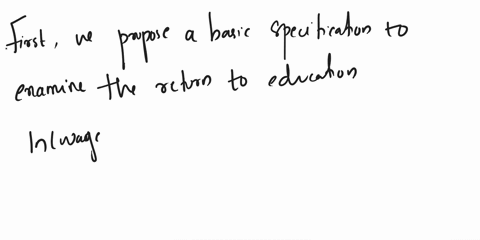 First, we propose a basic specification to
examine the return to education
ln(wage